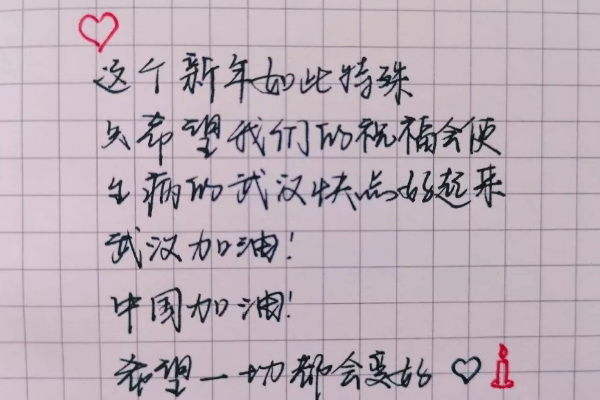 这个新年如此特殊
只希望我们的祝福会使
生病的武汉快点好起来
武汉加油!
中国加油!
希望一切都会变好